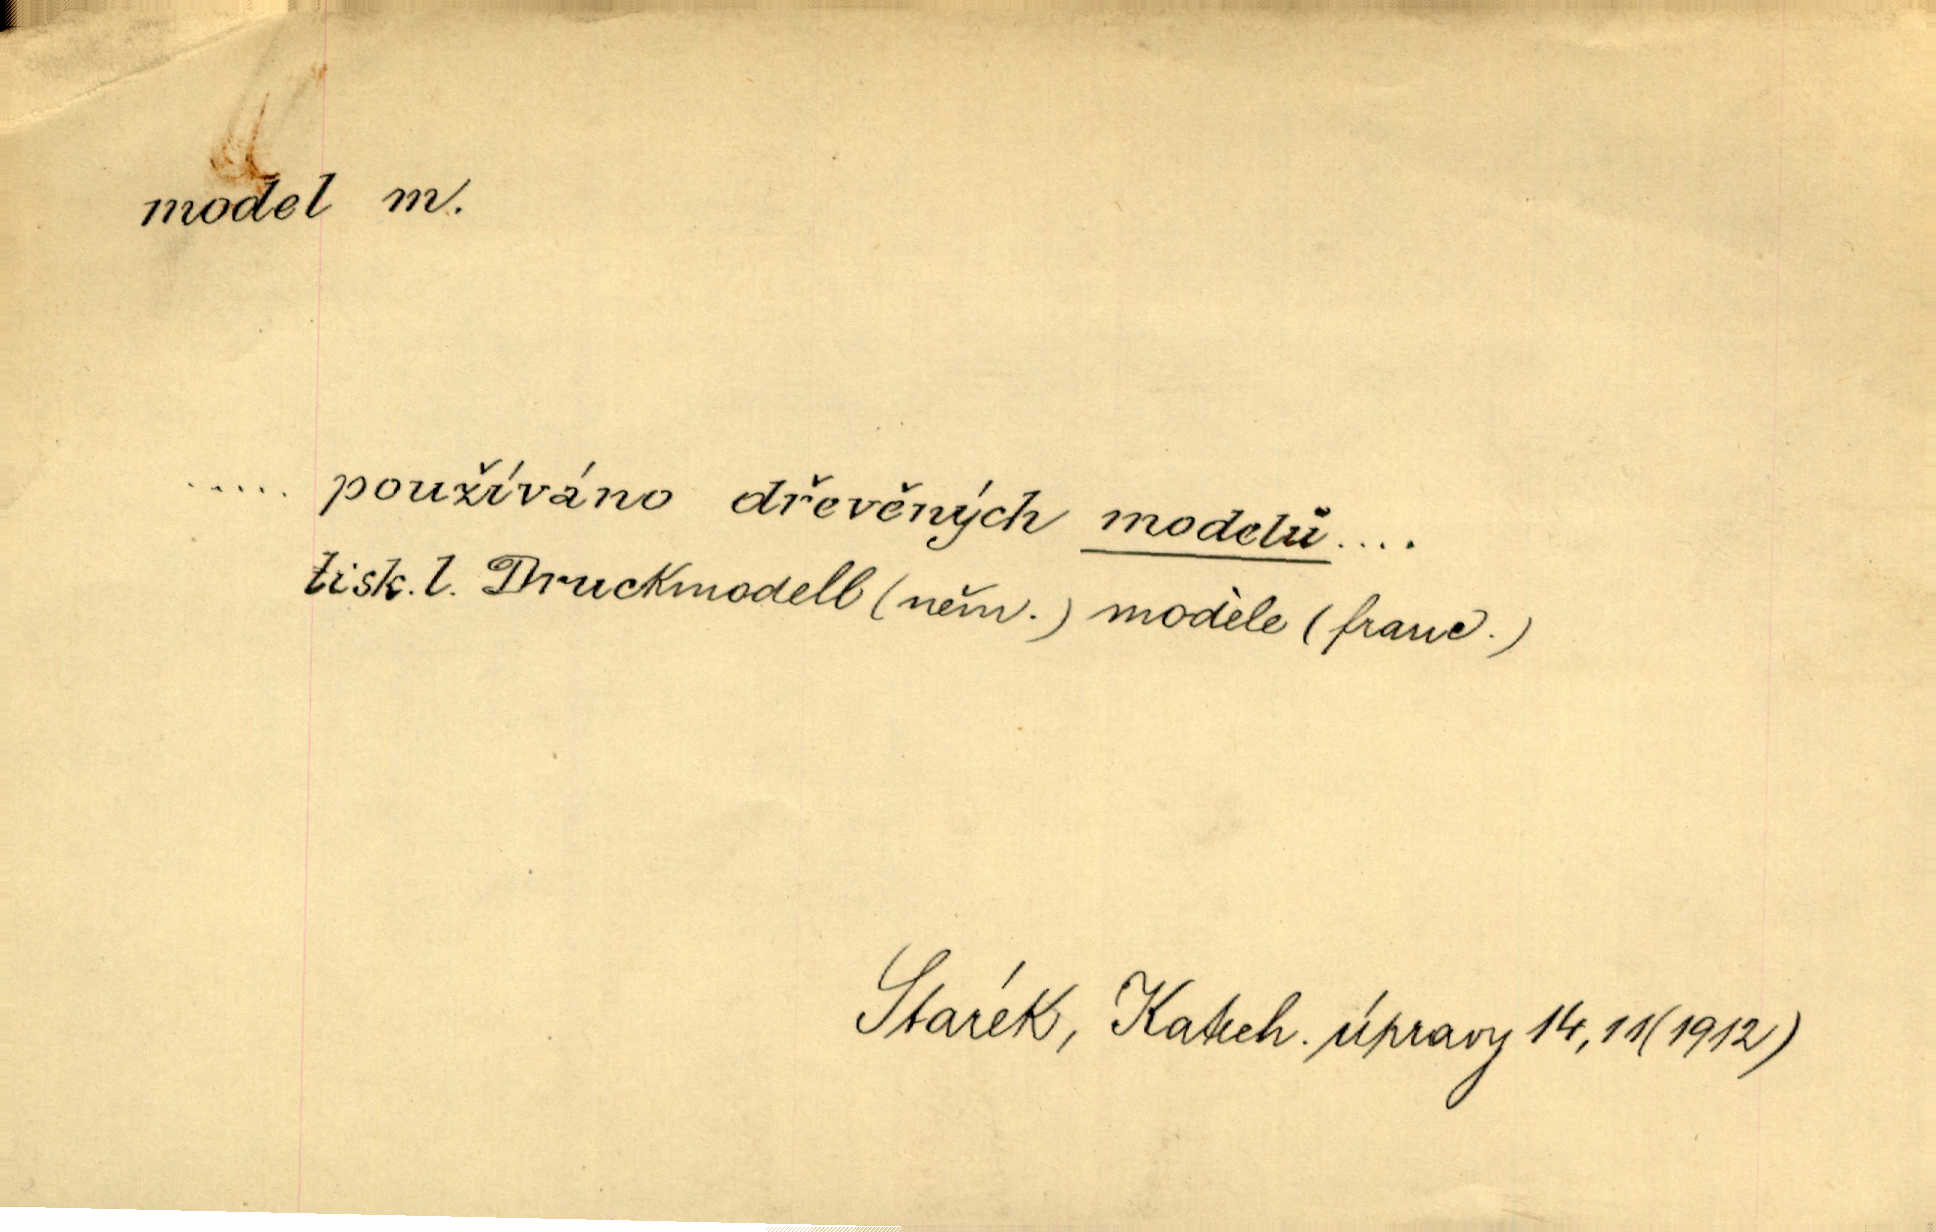 model m.
..... používáno dřevěných modelů....
tisk. l. Druckmodell (něm.) modèle (franc.)
Starék, Katech. úpravy 14, 11 (1912)